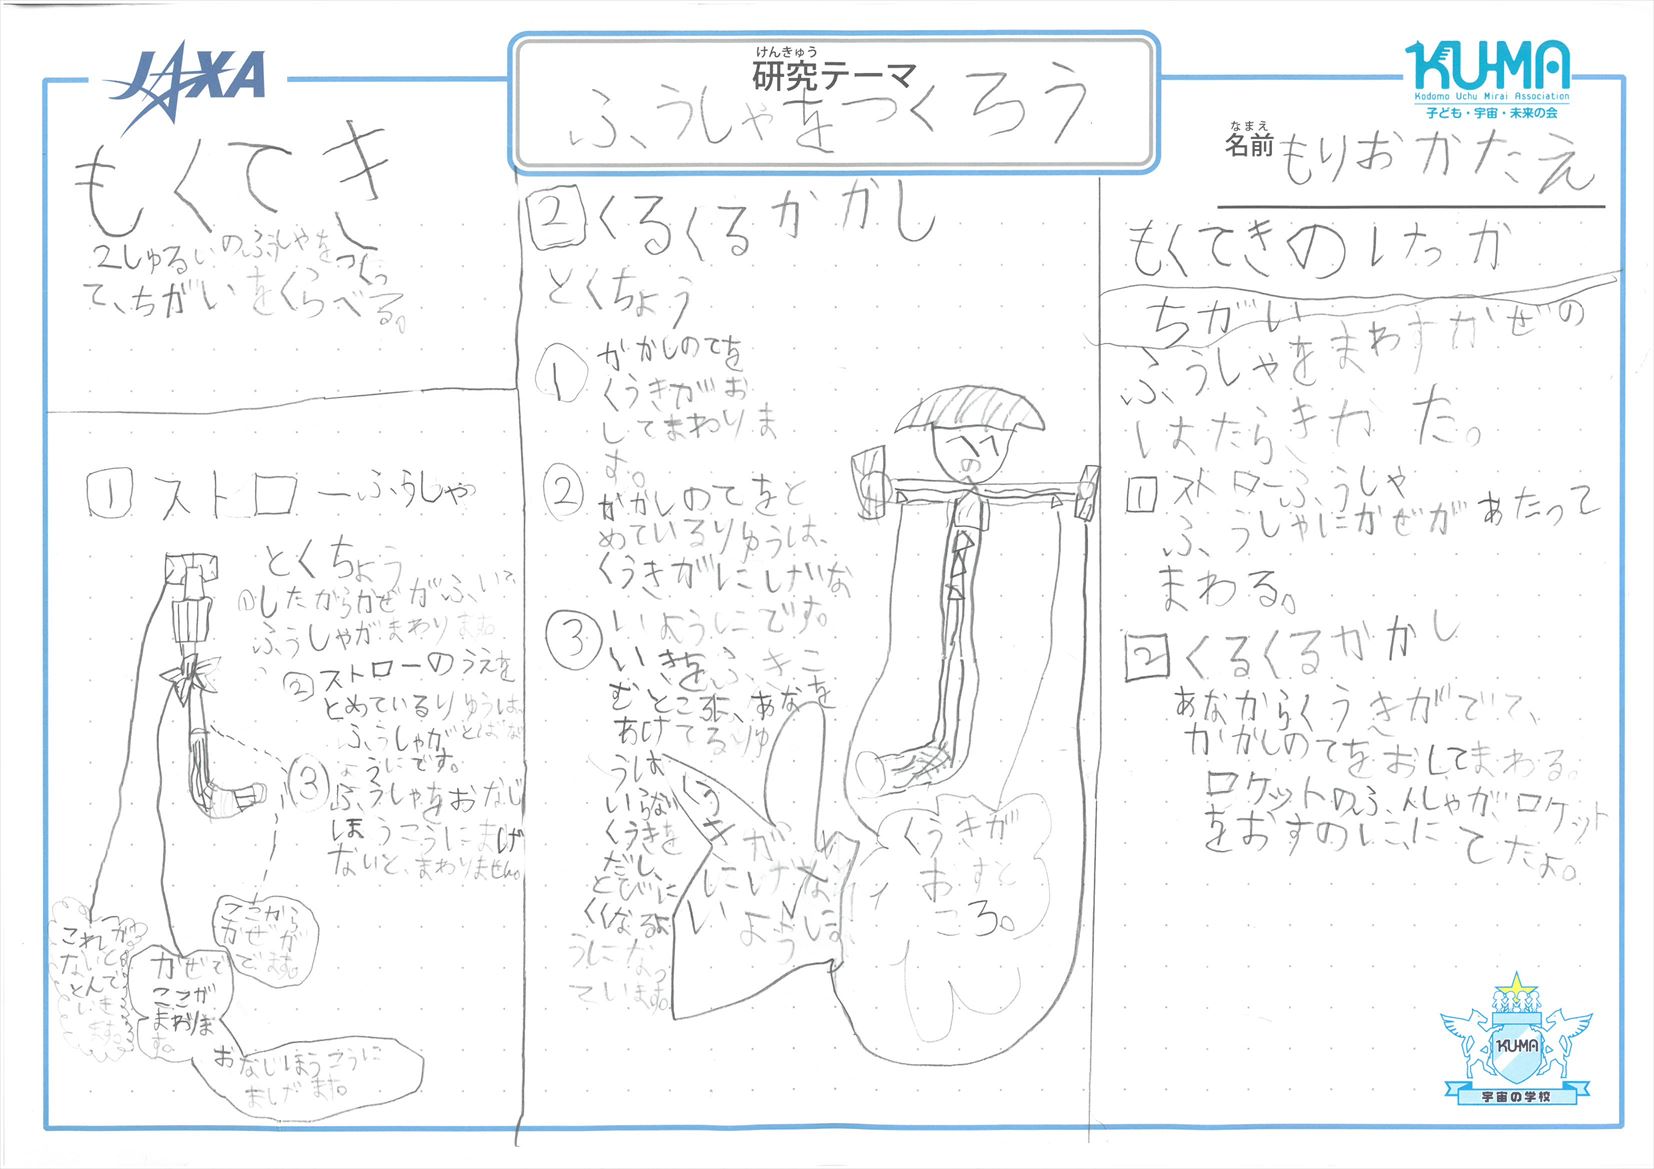 JAXA
けんきゅう
研究テーマ
ふうしゃをつくろう
KU-MA
Kodomo Uchu Mirai Association
子ども・宇宙・未来の会
なまえ
名前
もりおかたえ
もくてき
2しゅるいのふうしゃをつくっ
て、ちがいをくらべる。
1 ストローふうしゃ
とくちょう
① したからかぜがふいて
ふうしゃがまわります。
② ストローのうえを
とめているりゆうは、
ふうしゃがとばな
ようにです。
③ ふうしゃをおなじ
ほうこうにまげ
ないと、まわりません。
これが
ないと
とんで
いき
ます。
かぜで
ここが
まわりま
す。
ここから
かぜが
でます。
おなじほうこうに
まげます。
2 くるくるかかし
とくちょう
① かかしのてを
くうきがお
してまわりま
す。
② かかしのてをと
めているりゆうは、
くうきがにげな
いようにです。
③ いきをふきこ
むところに、あなを
あけてるりゆ
うは
いらない
くうきを
だし、
とびに
くくなるよ
うになっ
ています。
くうきが
にげない
ように
くうきが
おすと
ころ。
もくてきのけっか
ちがい
ふうしゃをまわすかぜの
はたらきかた。
1 ストローふうしゃ
ふうしゃにかぜがあたって
まわる。
2 くるくるかかし
あなからくうきがでて、
かかしのてをおしてまわる。
ロケットのふんしゃが、ロケット
をおすのににてたよ。
KU-MA
宇宙の学校